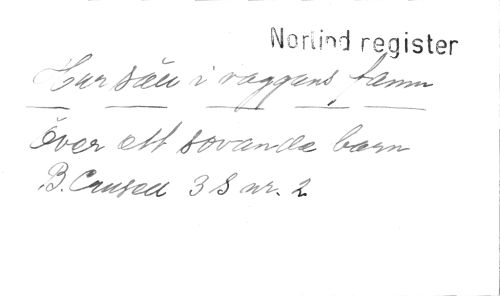 Norlind register
Hur säll i vaggans famn
över ett sovande barn
B. Crusell 3 S nr. 2